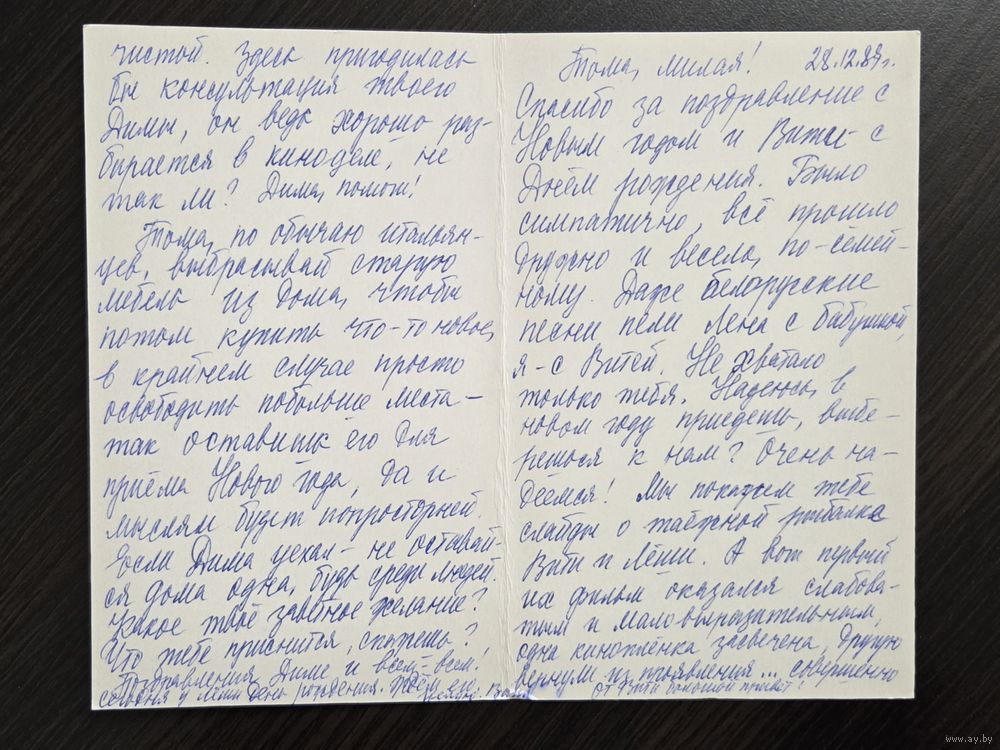 Тома, милая! 28.12.89г.
Спасибо за поздравление с
Новым годом и Вити – с
Днём рождения. Было
симпатично, всё прошло
дружно и весело, по-семей-
ному. Даже белорусские
песни пели Лена с бабушкой,
я – с Витей. Не хватало
только тебя. Надеюсь, в
новом году приедешь, выбе-
решься к нам? Очень на-
деемся! Мы покажем тебе
слайды о таёжной рыбалке
Вити и Лёши. А вот первый
их фильм оказался слабова-
тым и маловыразительным,
одна киноплёнка засвечена, другую
вернули из проявления... совершенно
чистой. Здесь пригодилась
бы консультация твоего
Димы, он ведь хорошо раз-
бирается в киноделе, не
так ли? Дима, помоги!
Тома, по обычаю итальян-
цев, выбрасывай старую
мебель из дома, чтобы
потом купить что-то новое,
в крайнем случае просто
освободить побольше места –
так оставишь его для
приёма Нового года, да и
мыслям будет попросторней.
Если Дима уехал – не оставай-
ся дома одна, будь среди людей.
Какое твоё заветное желание?
Что тебе приснится, скажешь?
Поздравления Диме и всем-всем!
Сегодня у Лёши день рождения. Ждём его
От Вити большой привет!
www.ay.by